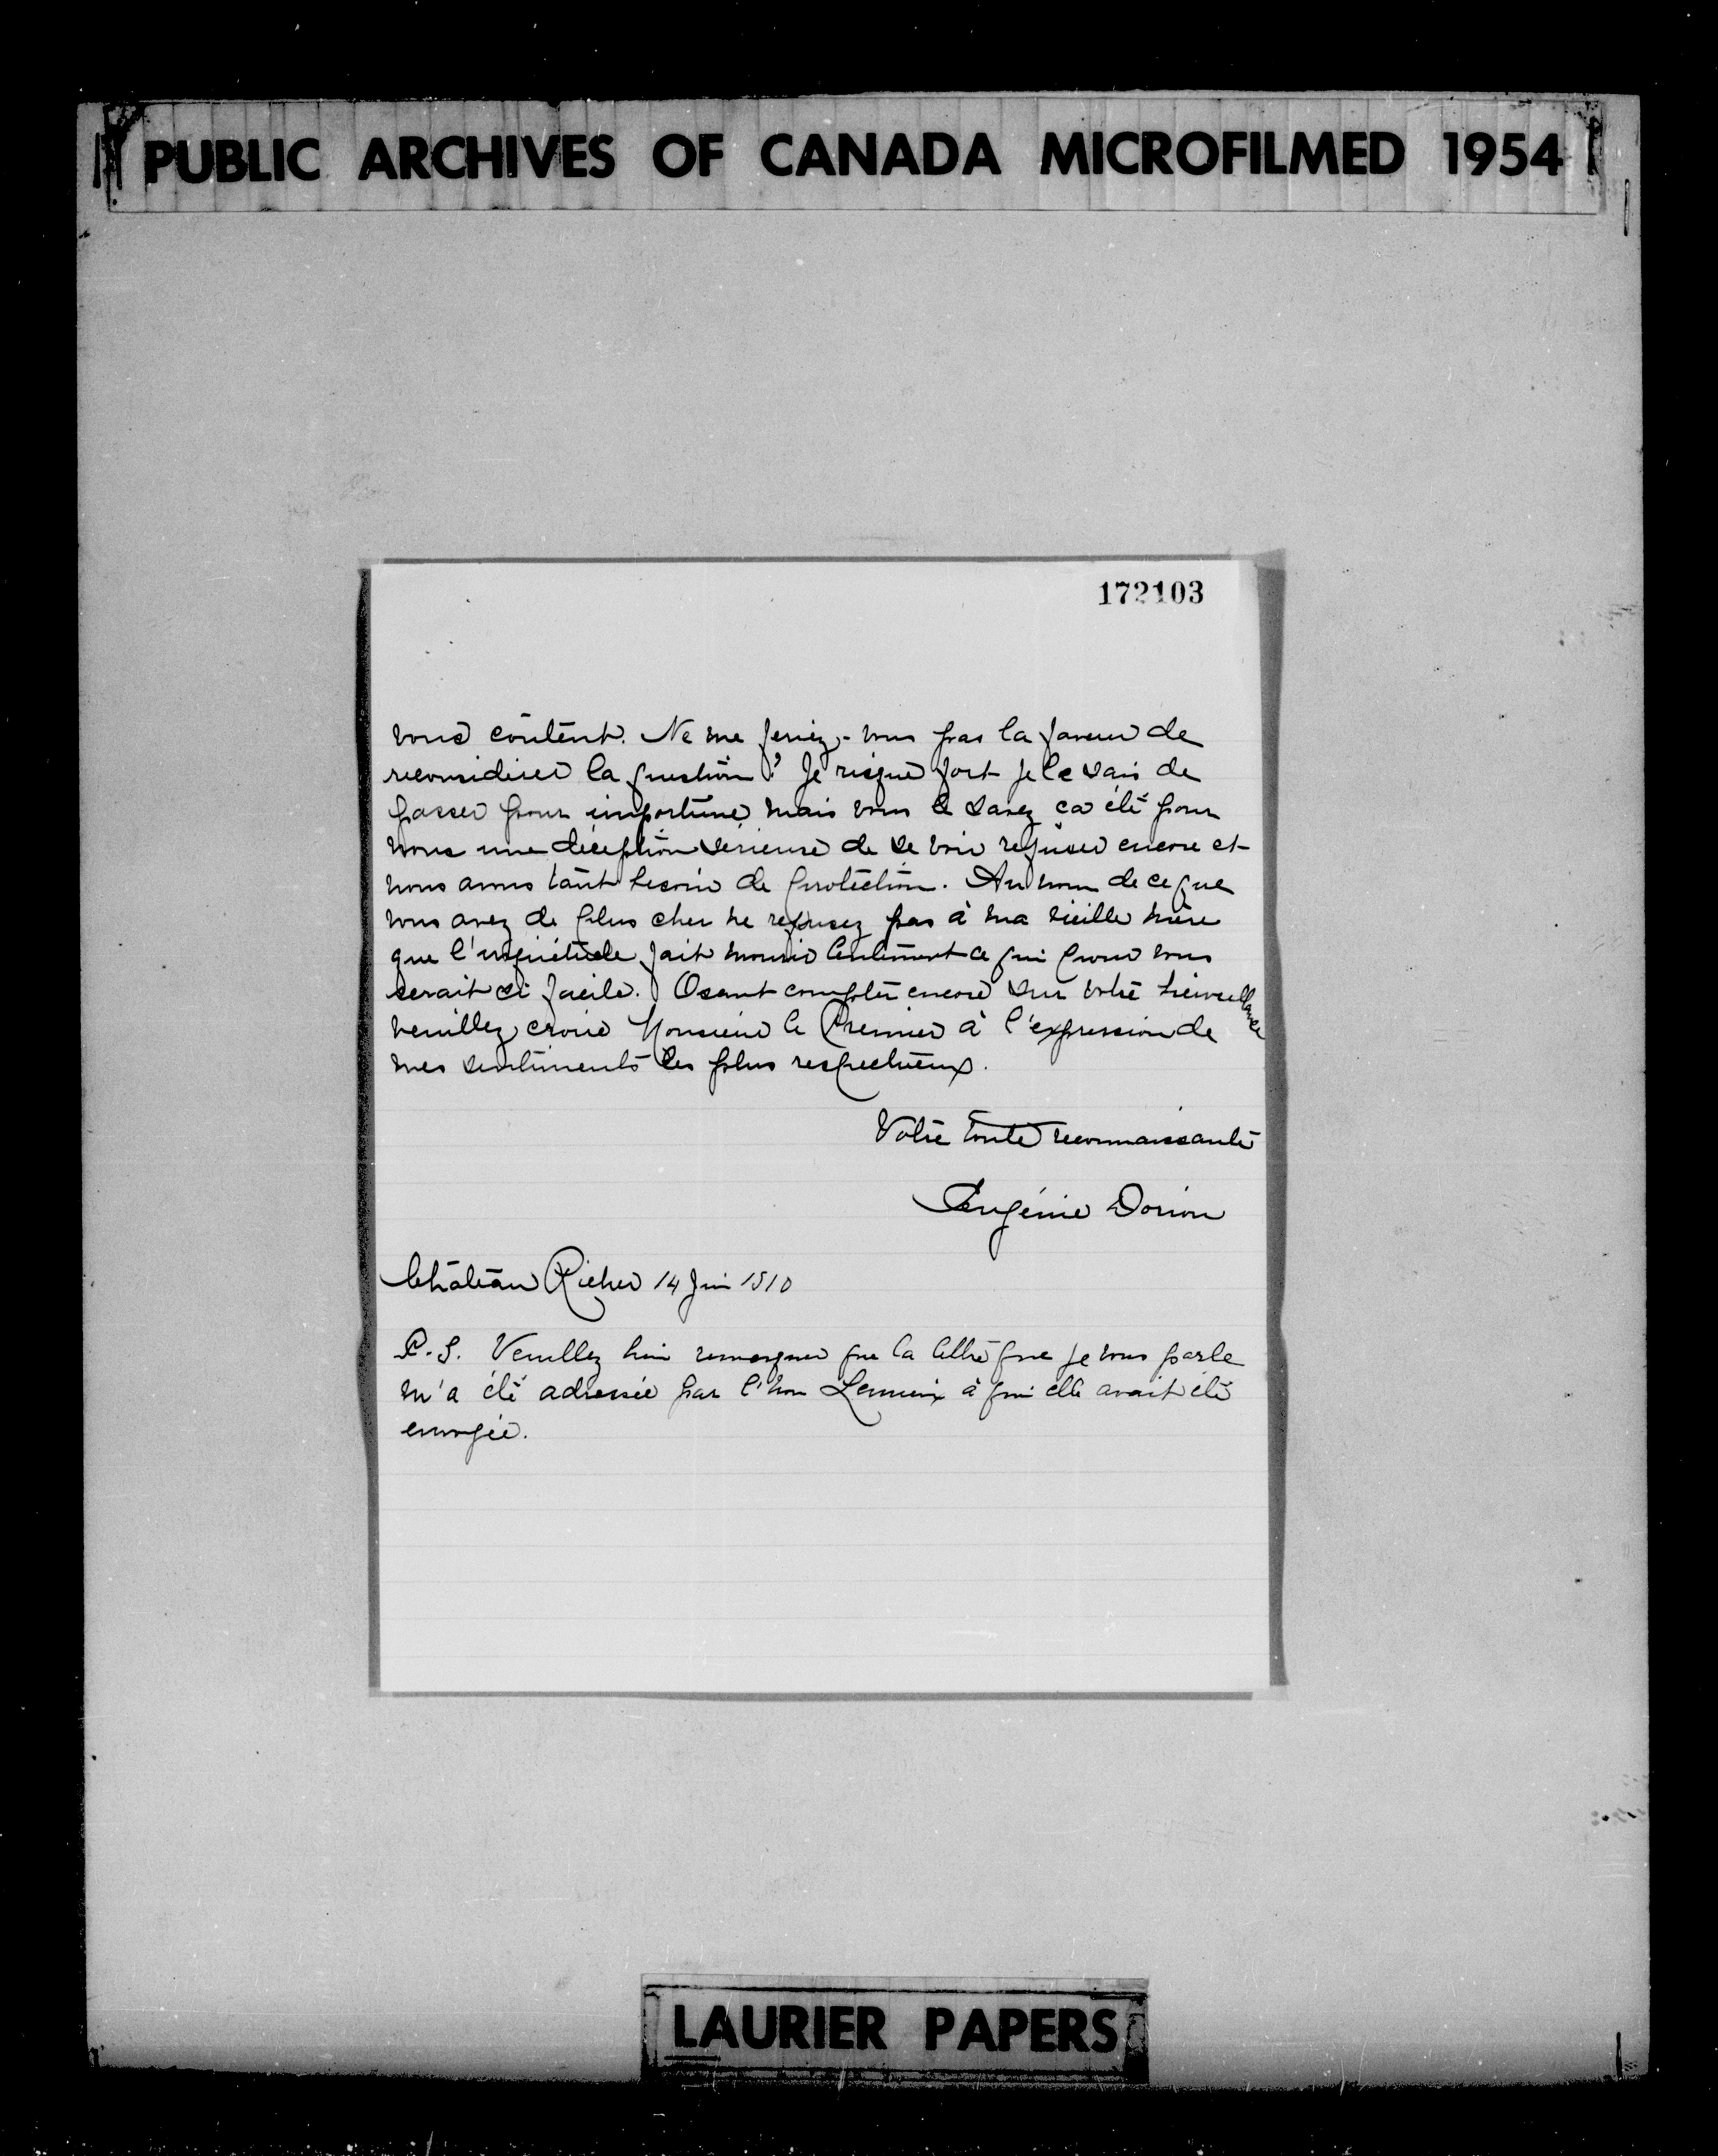 PUBLIC ARCHIVES OF CANADA MICROFILMED 1954
172103
vous content. Ne me feriez-vous pas la faveur de
reconsidérer la question? Je risque fort je le sais de
passer pour importune, mais vous le savez ça été pour
nous une déception sérieuse de se voir refuser encore et
nous avons tant besoin de protection. Au nom de ce que
vous avez de plus cher ne refusez pas à ma vieille mère
que l'inquiétude fait mourir lentement ce qui pour vous
serait si facile. Osant compter encore sur votre bienveillance
veuillez croire Monsieur le Premier à l'expression de
mes sentiments les plus respectueux.
Votre toute reconnaissante
Eugénie Dorion
Château Richer 14 Juin 1910
P.S. Veuillez bien remarquer que la lettre que je vous parle
m'a été adressée par l'hon Lemieux à qui elle avait été
envoyée.
LAURIER PAPERS